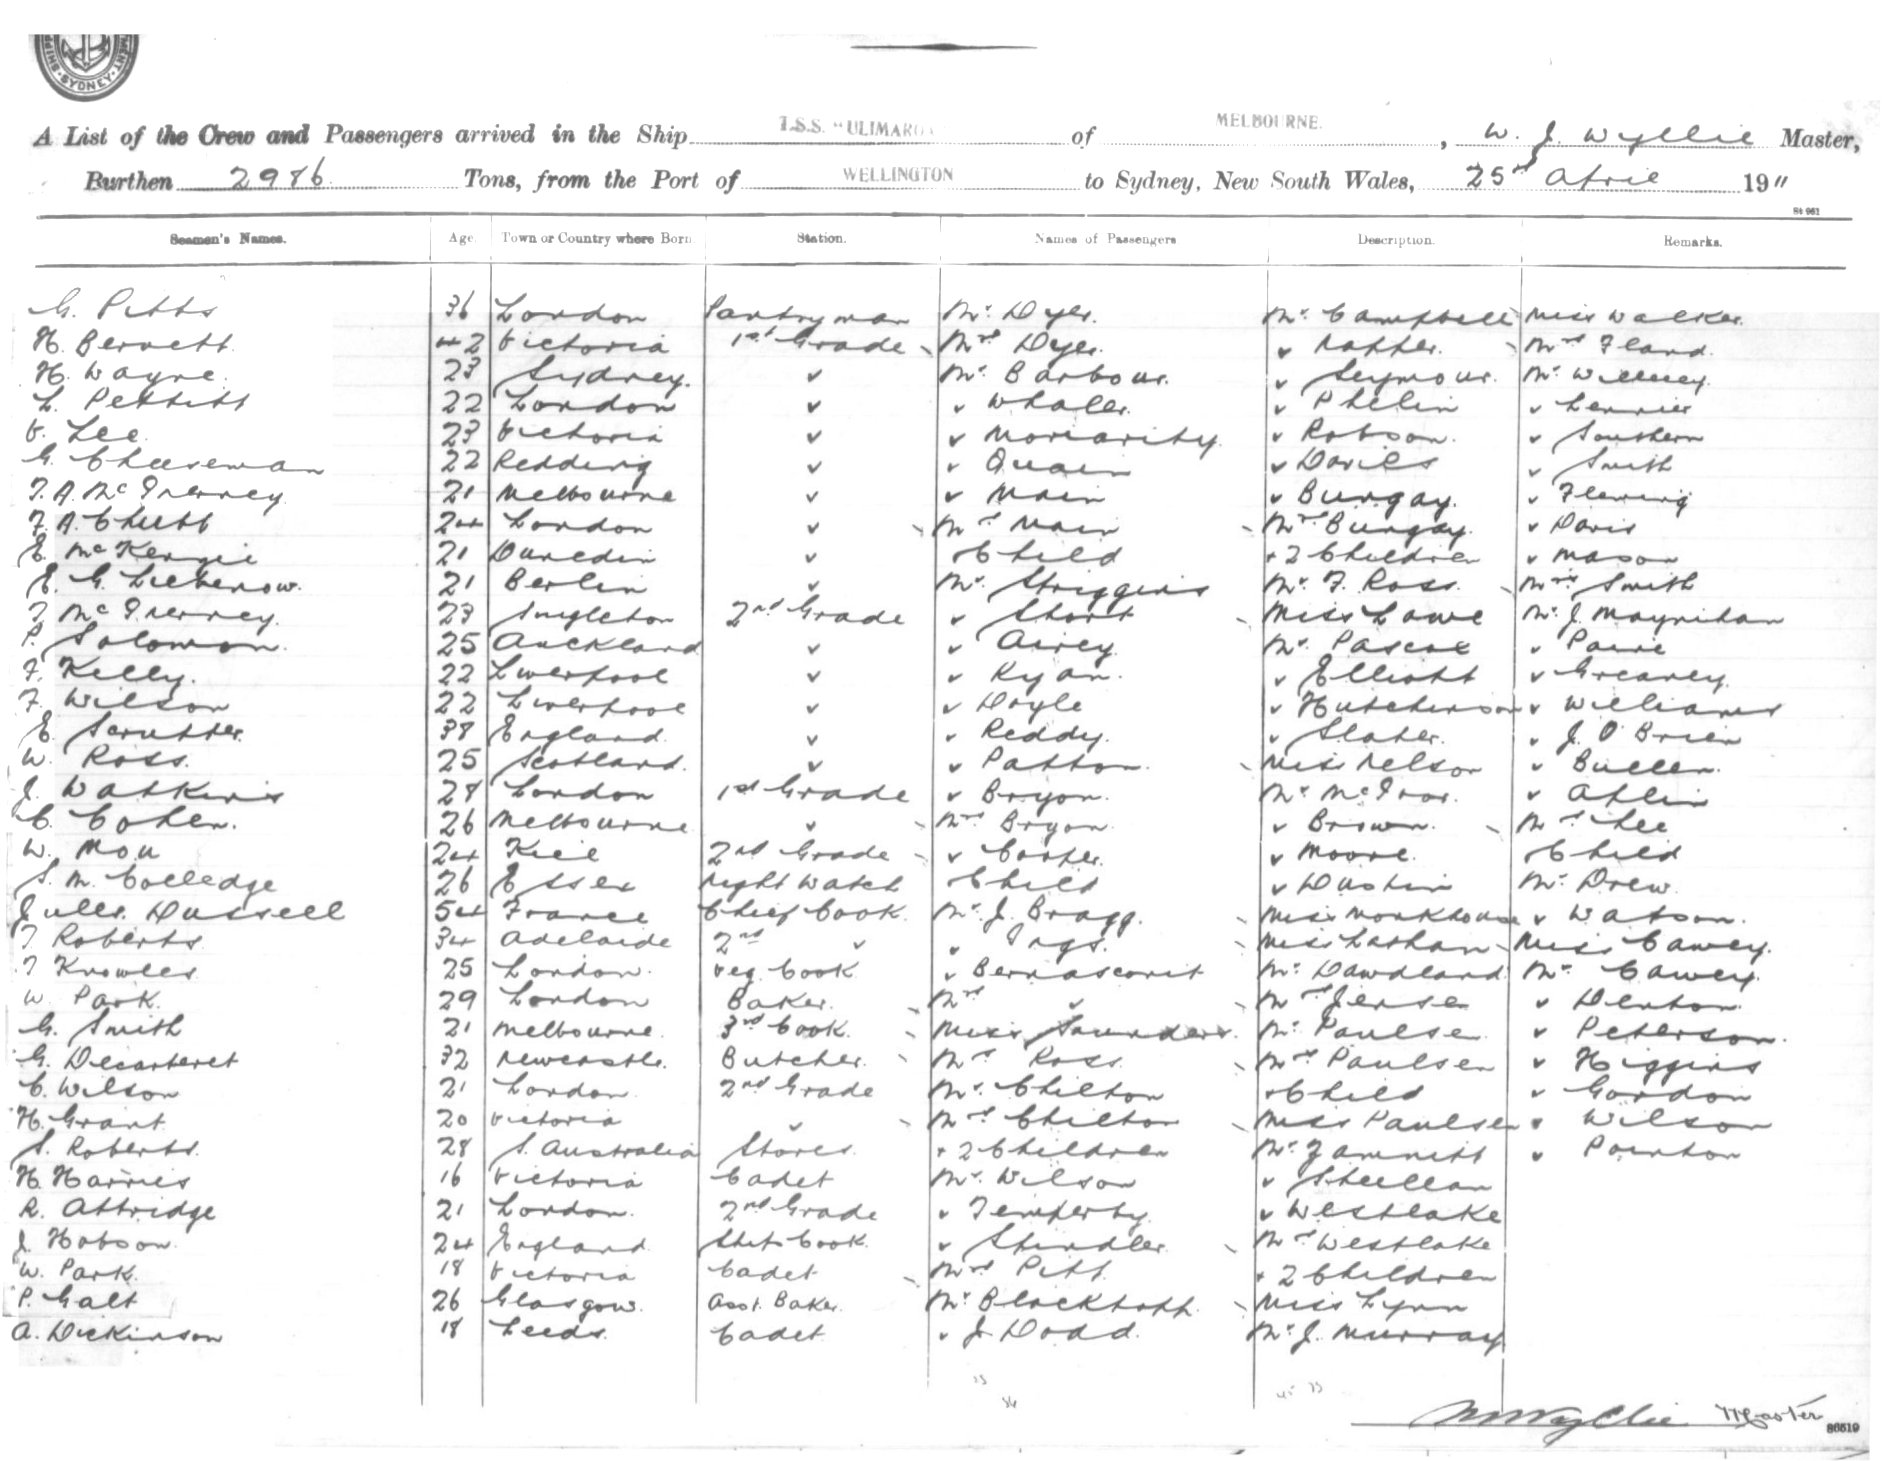 SYDNEY
A List of the Crew and Passengers arrived in the Ship T.S.S. "ULIMAROA of MELBOURNE. , W. J. Wyllie Master,
Burthen 2986 Tons, from the Port of WELLINGTON to Sydney, New South Wales, 25th April 1911
St 961
Seamen's Names. Age. Town or Country where Born Station. Names of Passengers Description. Remarks.
G. Pitts 36 London Pantryman Mr. Dyer. Mr. Campbell Miss Walker.
H. Bennett 42 Victoria 1st Grade Mrs Dyer. ✓ Napper. Mrs Fland.
H. Wayne. 23 Sydney. ✓ Mr. Barbour. ✓ Seymour. Mr.
L. Pettitt 22 London ✓ ✓ Whaler. ✓ Phelin ✓
V. Lee. 23 Victoria ✓ ✓ Moriarity. ✓ Robson. ✓ Southern
G. Cheeseman 22 Redding ✓ ✓ Quain ✓ Davies ✓ Smith
T. A. McInerney. 21 Melbourne ✓ ✓ Main ✓ Bungay. ✓ Fleming
F. A. Chubb 24 London ✓ Mrs Main Mrs Bungay. ✓ Davis
E. McKenzie 21 Dunedin ✓ Child + 2 Children ✓ Mason
E. G. Liebenow. 21 Berlin ✓ Mr. Striggins Mr. F. Ross. Mrs Smith
T. McInerney. 23 Singleton 2nd Grade ✓ Short Miss Lowe Mr. J. Moynihan
P. Solomon. 25 Auckland ✓ ✓ Airey. Mr. Pascoe ✓
F. Kelly. 22 Liverpool ✓ ✓ Ryan. ✓ Elliott ✓ Greaney.
F. Wilson 22 Liverpool ✓ ✓ Doyle ✓ Hutchinson ✓ Williams
E. Scrutter. 38 England. ✓ ✓ Reddy. ✓ Slater. ✓ J. O'Brien
W. Ross. 25 Scotland. ✓ ✓ Patton. Miss Nelson ✓ Bullen.
J. Watkins 28 London 1st Grade ✓ Bryon. Mr. McIvor. ✓ Aplin
C. Cohen. 26 Melbourne ✓ Mrs Bryon. ✓ Brown. Mrs Lee
W. Mou 24 Kiel 2nd Grade ✓ Cooper. ✓ Moore. Child
S. M. Colledge 26 Essex Night Watch Child ✓ Dustin Mr. Drew.
Jules. Dussell 54 France Chief Cook. Mr. J. Bragg. Miss Monkhouse ✓ Watson.
T Roberts. 34 Adelaide 2nd ✓ ✓ Miss Lathan Miss Cawey.
T Knowles. 25 London. Veg. Cook ✓ Bernasconit Mr. Dawdland Mr. Cawey.
W. Park. 29 London Baker. Mrs ✓ Mrs Jensen ✓ Denton.
G. Smith 21 Melbourne. 3rd Cook. Miss Saunders. Mr. Paulsen. ✓ Peterson.
G. Decarteret 32 Newcastle. Butcher. Mrs Ross. Mrs Paulsen ✓ Higgins
C. Wilson 21 London. 2nd Grade Mr. Chilton + Child ✓ Gordon
H. Grant 20 Victoria ✓ Mrs Chilton Miss Paulsen ✓ Wilson
S. Roberts. 28 S. Australia Stores. + 2 Children Mr. Zammitt ✓ Pointon
H. Harries 16 Victoria Cadet Mr. Wilson ✓
R. Attridge 21 London. 2nd Grade ✓ Temperby. ✓ Westlake
J. Hobson. 24 England. Ship's Cook. ✓ Shindler. Mrs Westlake
W. Park. 18 Victoria Cadet Mrs Pitt + 2 Children
P. Galt 26 Glasgow. Asst. Baker. Mr. Blocktopp. Miss Lynn
A. Dickinson 18 Leeds. Cadet. ✓ J. Dodd. Mr. J. Murray
W J Wyllie Master
86519